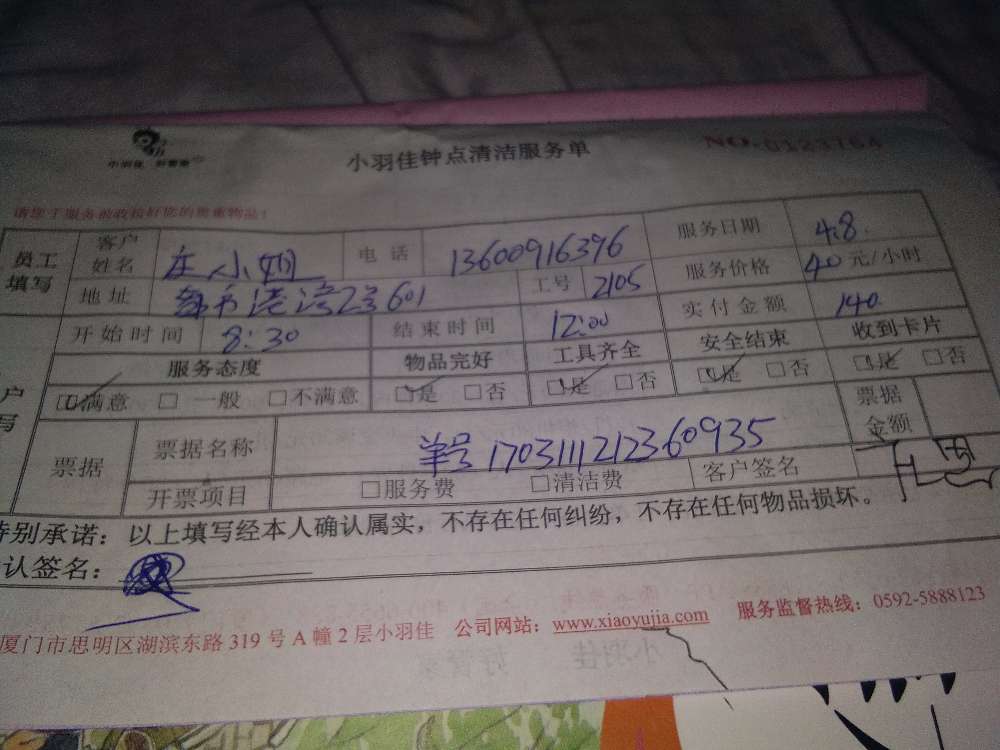 小羽佳 好管家
小羽佳钟点清洁服务单
NO. 0123164
请您于服务前收捡好您的贵重物品！
员工填写 客户姓名 庄小姐 电话 13600916396 服务日期 4.8.
地址 2号601 工号 2105 服务价格 40元/小时
开始时间 8:30 结束时间 12:00 实付金额 140.
服务态度 物品完好 工具齐全 安全结束 收到卡片
户写 □满意 □一般 □不满意 □是 □否 □是 □否 □是 □否 □是 □否
票据 票据名称 单号 1703111212360935 票据金额
开票项目 □服务费 □清洁费 客户签名
特别承诺：以上填写经本人确认属实，不存在任何纠纷，不存在任何物品损坏。
认签名：
厦门市思明区湖滨东路 319 号 A 幢 2 层小羽佳 公司网站：www.xiaoyujia.com 服务监督热线：0592-5888123